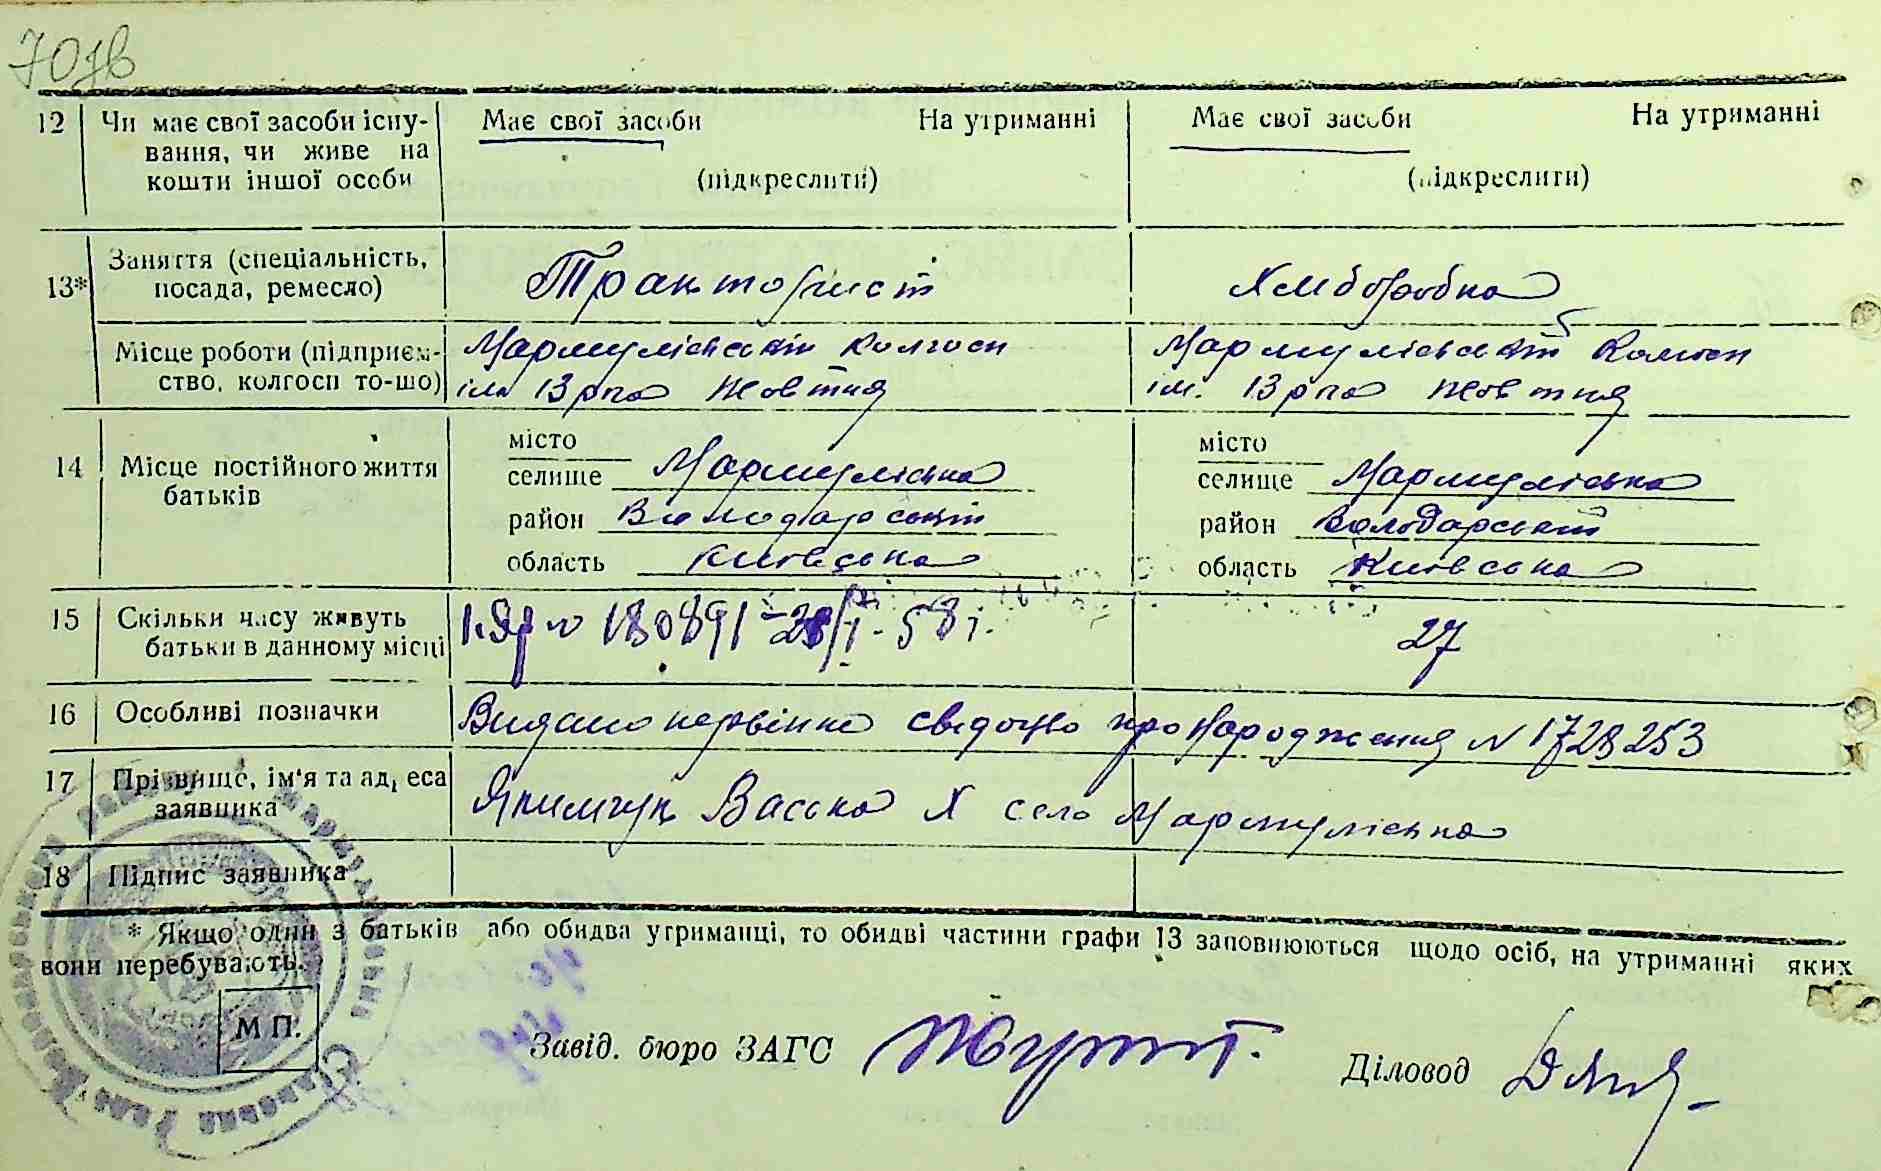 701в
12 Чи має свої засоби існування, чи живе на кошти іншої особи
Має свої засоби На утриманні
(підкреслити)
Має свої засоби На утриманні
(підкреслити)
13* Заняття (спеціальність, посада, ремесло)
Тракторист
Хліборобка
Місце роботи (підприємство, колгосп то-що)
Мармуліївський колгосп
ім 13 рча Жовтня
Мармуліївський колгосп
ім. 13 рча Жовтня
14 Місце постійного життя батьків
місто
селище Мармуліївка
район Володарський
область Київська
місто
селище Мармуліївка
район Володарський
область Київська
15 Скільки часу живуть батьки в данному місці
N 180891 58 г.
27
16 Особливі позначки
Видано первінне свідоцтво про народження N 1728253
17 Прізвище, ім'я та адреса заявника
Якимчук Васька Х село Мармуліївка
18 Підпис заявника
* Якщо один з батьків або обидва утриманці, то обидві частини графи 13 заповнюються щодо осіб, на утриманні яких
вони перебувають.
М П.
Завід. бюро ЗАГС
Діловод